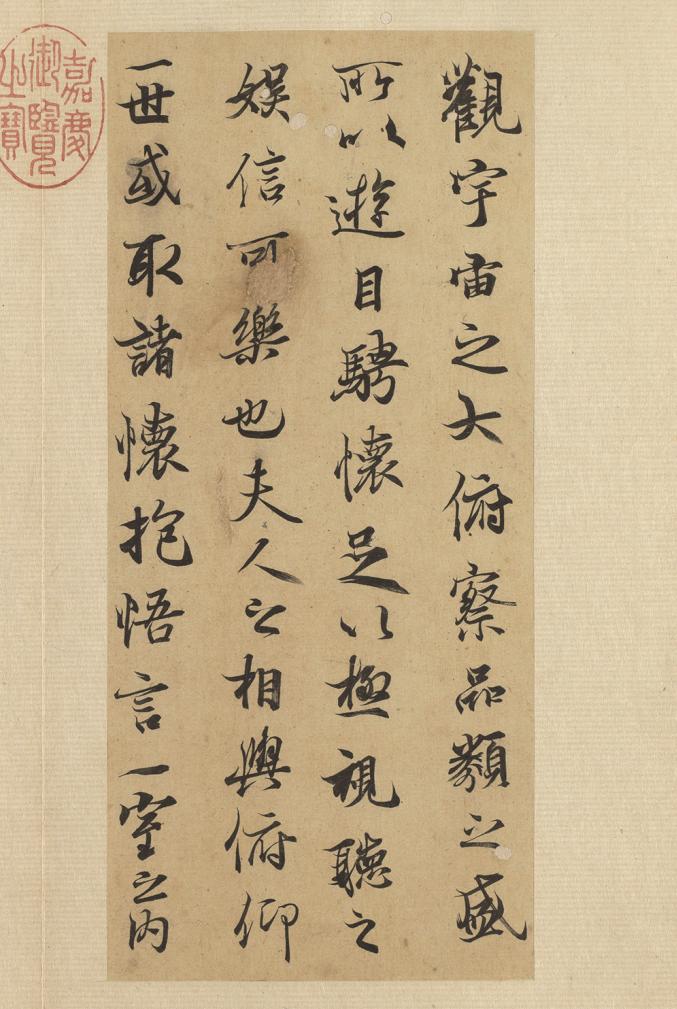 觀宇宙之大俯察品類之盛
所以遊目騁懷足以極視聽之
娛信可樂也夫人之相與俯仰
一世或取諸懷抱悟言一室之內
嘉慶御覽之寶